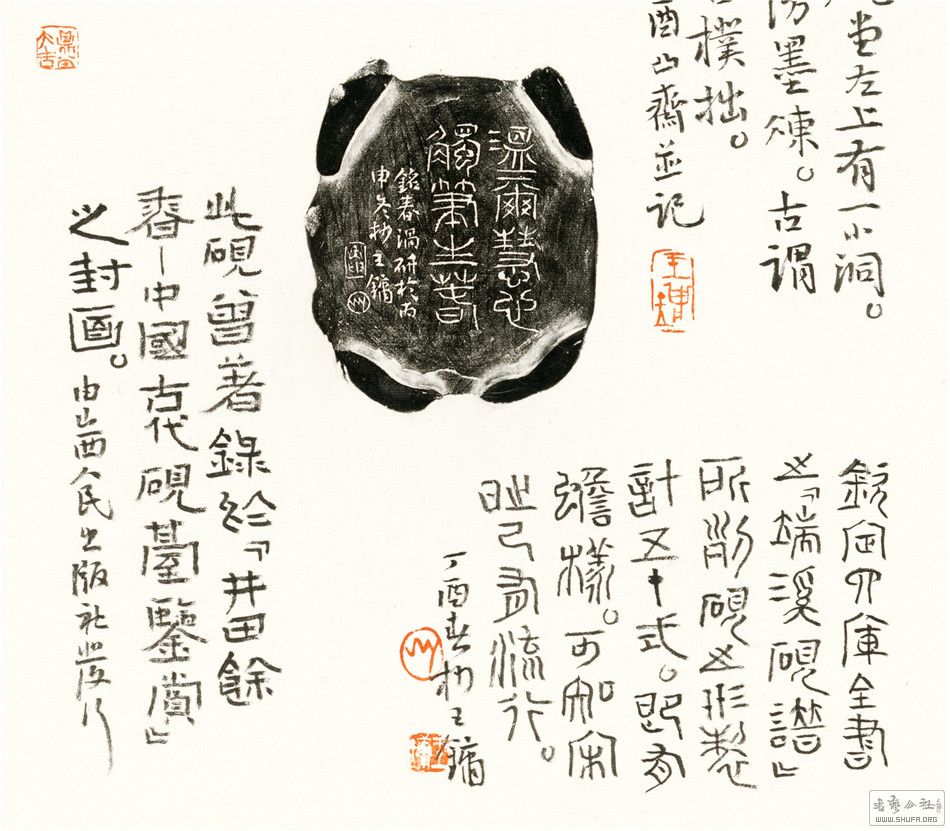 堂左上有一小洞。
墨煉。古謂
樸拙。
酉山齋並記
溫爾慧心
觸筆生春
銘春渦研於丙
申冬抄王鏞
欽定四庫全書
之『端溪硯譜』
所列硯之形製
計五十式。即有
蟾樣。可知宋
時已有流行。
丁酉春初王鏞
此硯曾著錄於『井田餘
春—中國古代硯臺鑒賞』
之封面。由山西人民出版社發行
WWW.SHUFA.ORG